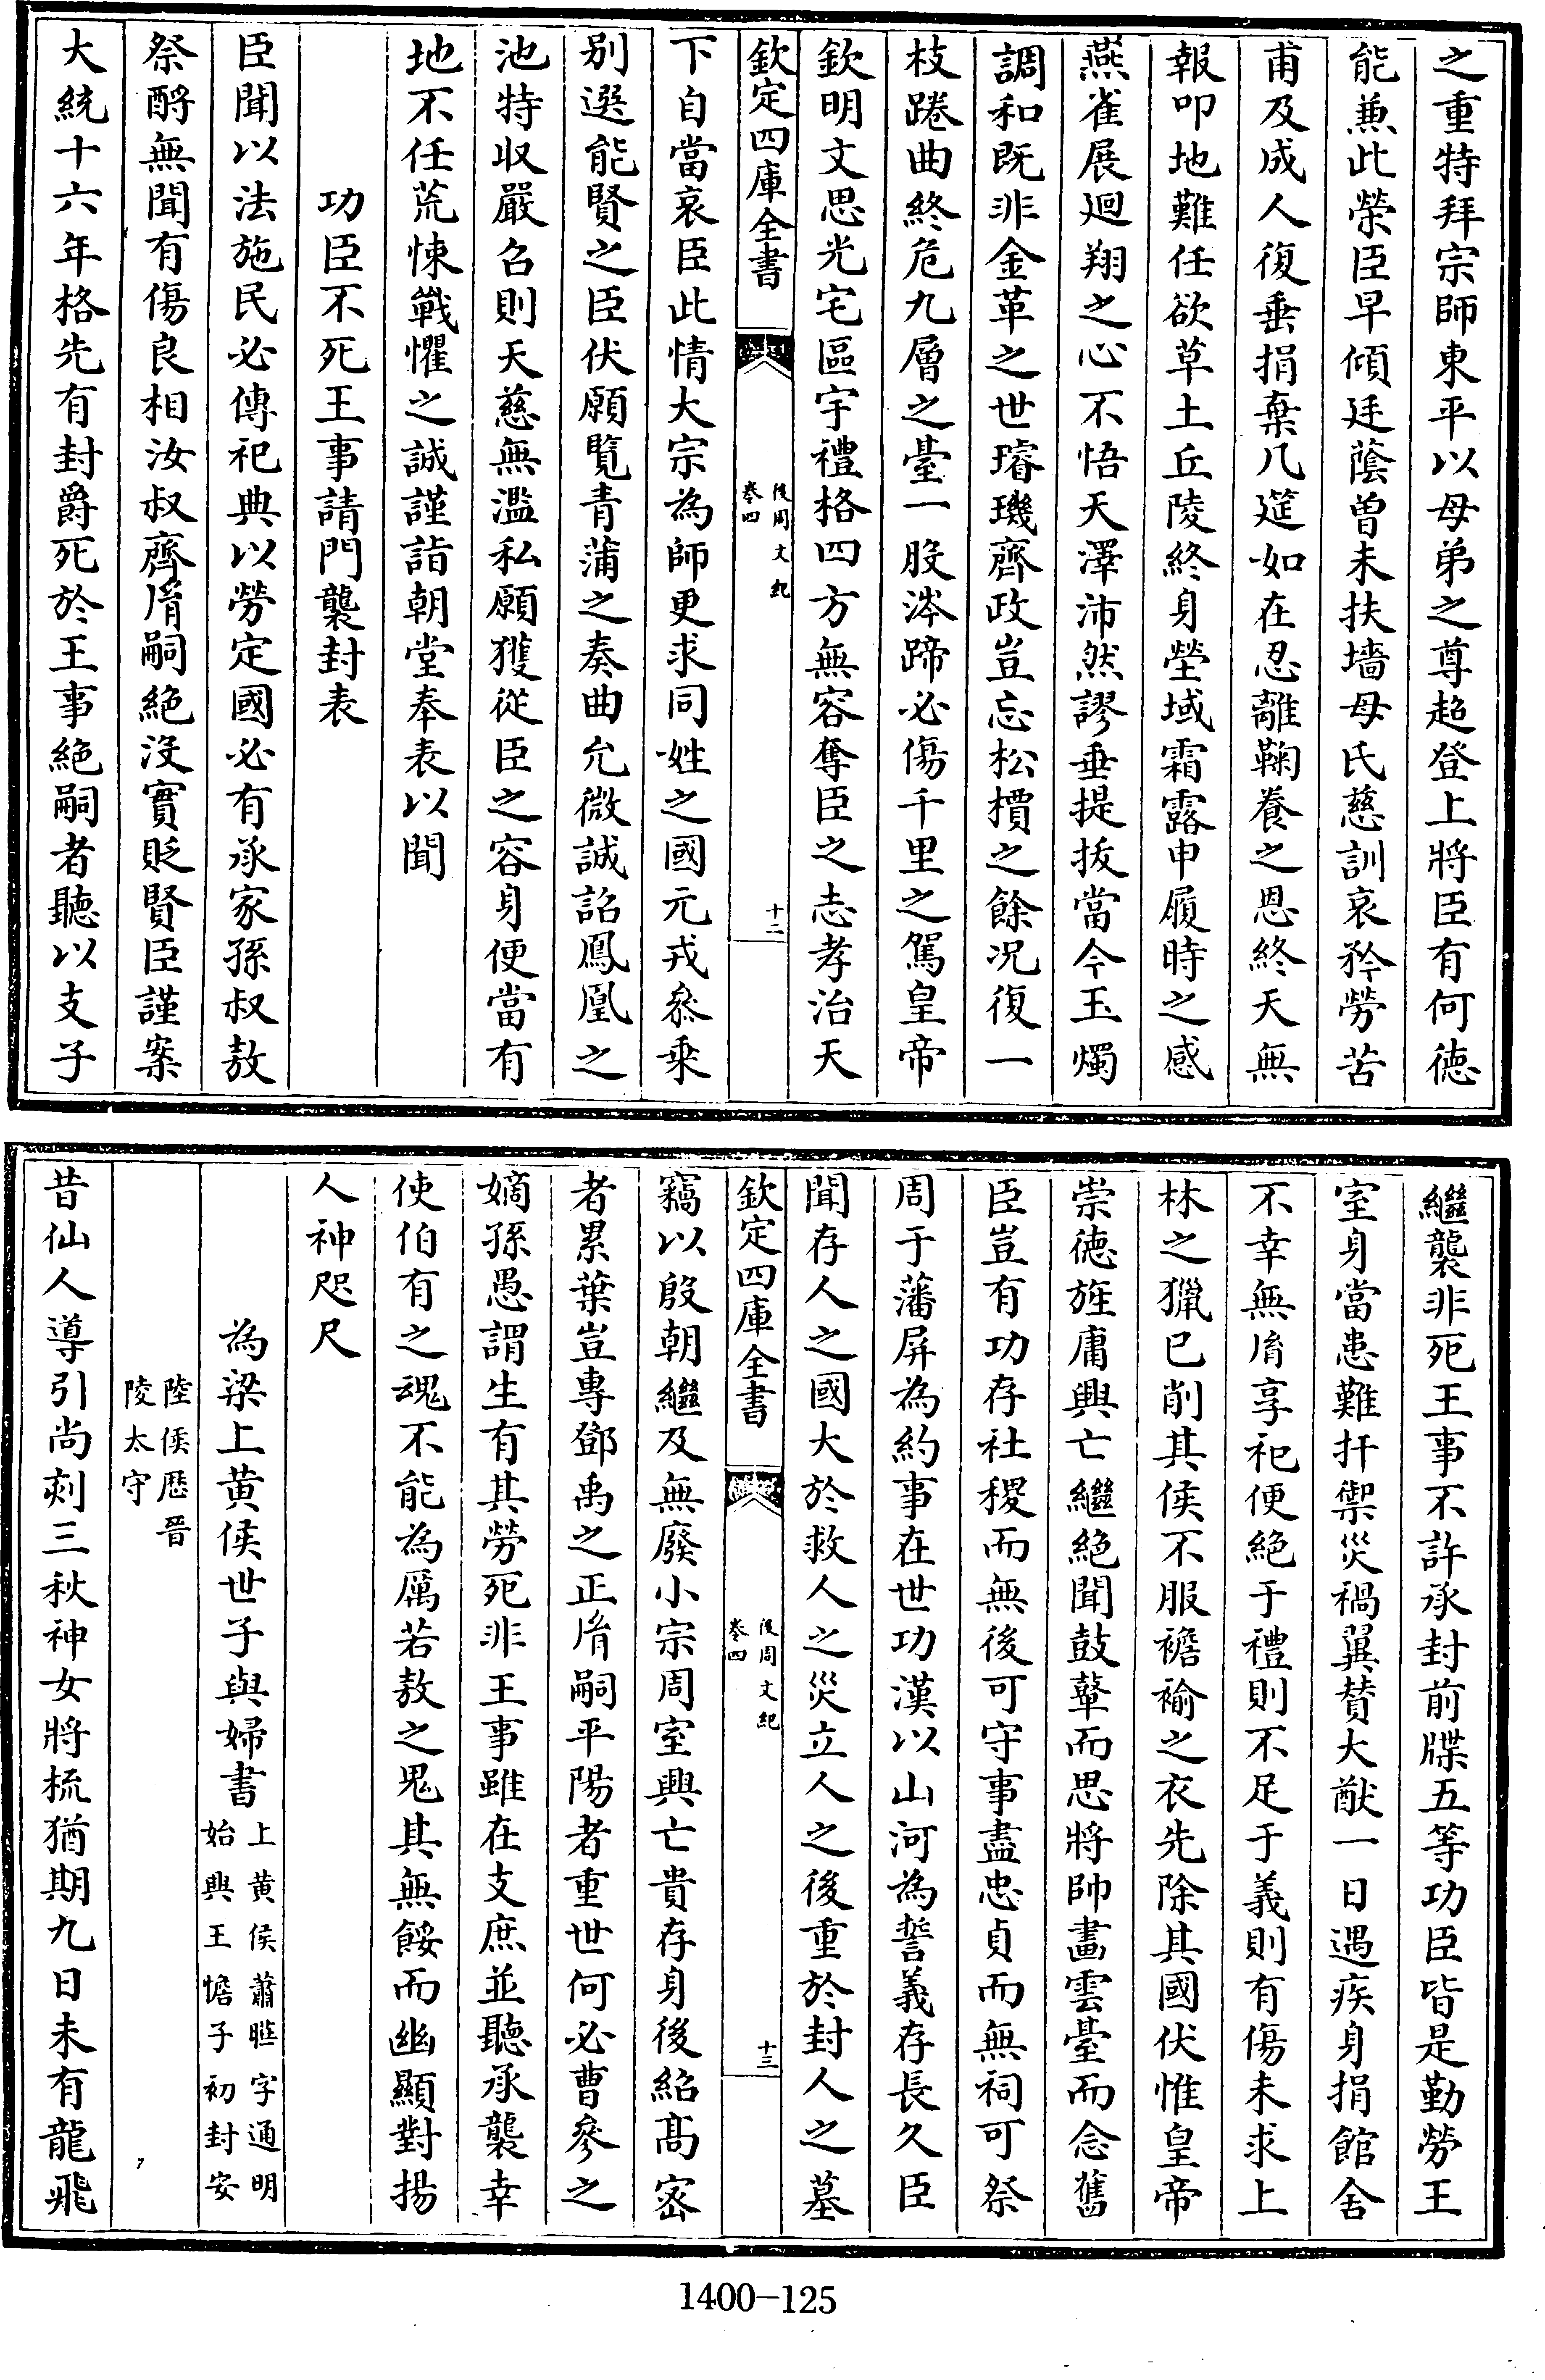 之重特拜宗師東平以母弟之尊超登上將臣有何德
能兼此榮臣早傾廷蔭曽未扶墻母氏慈訓哀矜勞苦
甫及成人復垂捐棄几筵如在忍離鞠養之恩終天無
報叩地難任欲草土丘陵終身塋域霜露申履時之感
燕雀展迴翔之心不悟天澤沛然謬垂提拔當今玉燭
調和既非金革之世璿璣齊政豈忘松檟之餘况復一
枝踡曲終危九層之臺一股涔蹄必傷千里之駕皇帝
欽明文思光宅區宇禮格四方無容奪臣之志孝治天
欽定四庫全書
後周文紀
卷四
十二
下自當哀臣此情大宗為師更求同姓之國元戎叅乘
别選能賢之臣伏願覽青蒲之奏曲允微誠詔鳳凰之
池特收嚴召則天慈無濫私願獲從臣之容身便當有
地不任荒悚戰懼之誠謹詣朝堂奉表以聞
功臣不死王事請門襲封表
臣聞以法施民必傳祀典以勞定國必有承家孫叔敖
祭酹無聞有傷良相汝叔齊𦙍嗣絶沒實貶賢臣謹案
大統十六年格先有封爵死於王事絶嗣者聽以支子
繼襲非死王事不許承封前牒五等功臣皆是勤勞王
室身當患難扞禦災禍翼賛大猷一日遇疾身捐館舍
不幸無𦙍享祀便絶于禮則不足于義則有傷未求上
林之獵已削其侯不服襜褕之衣先除其國伏惟皇帝
崇德旌庸興亡繼絶聞鼓鼙而思將帥畫雲臺而念舊
臣豈有功存社稷而無後可守事盡忠貞而無祠可祭
周于藩屏為約事在世功漢以山河為誓義存長久臣
聞存人之國大於救人之災立人之後重於封人之墓
欽定四庫全書
後周文紀
卷四
十三
竊以殷朝繼及無廢小宗周室興亡貴存身後紹髙密
者累葉豈專鄧禹之正𦙍嗣平陽者重世何必曹參之
嫡孫愚謂生有其勞死非王事雖在支庶並聽承襲幸
使伯有之魂不能為厲若敖之鬼其無餒而幽顯對揚
人神咫尺
為梁上黄侯世子與婦書上黄侯蕭曄字通明
始興王憺子初封安
陸侯歴晉
陵太守
昔仙人導引尚刻三秋神女將梳猶期九日未有龍飛
1400-125